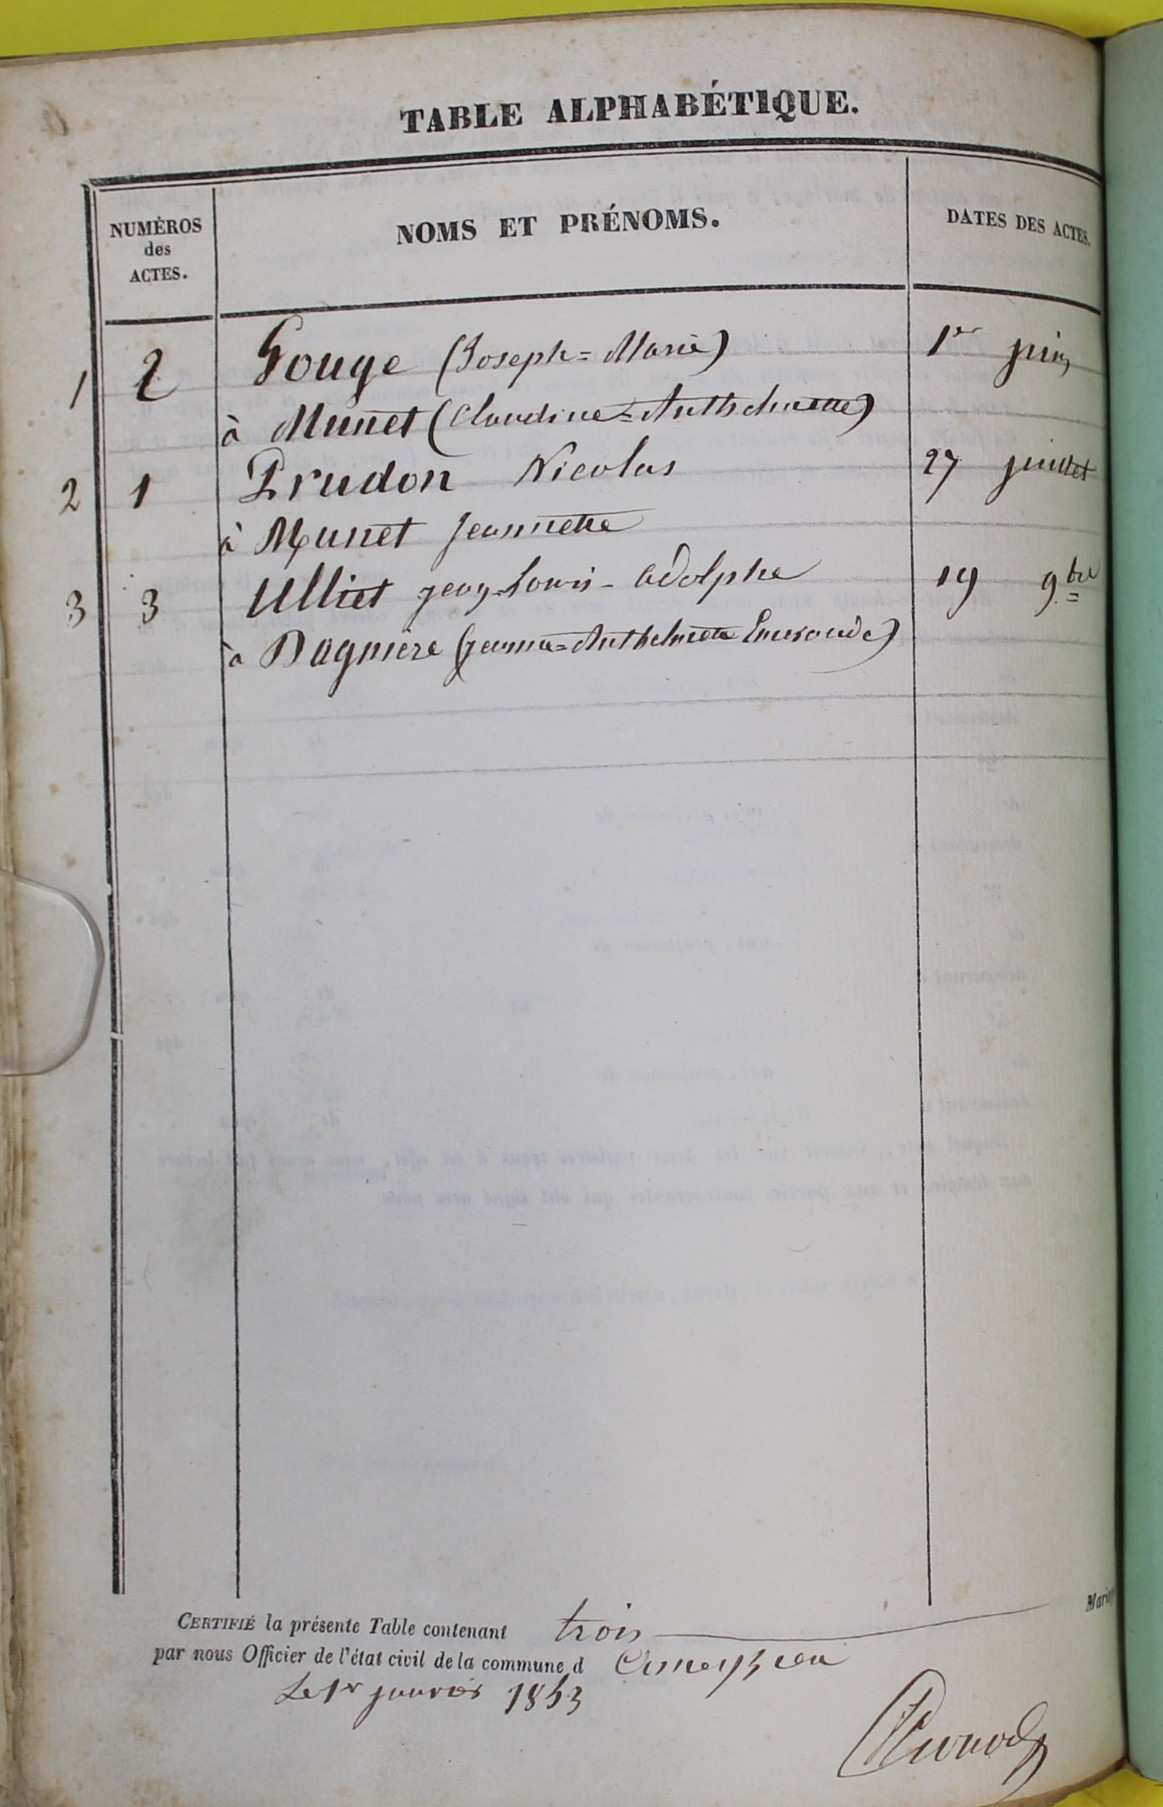 TABLE ALPHABÉTIQUE.
NUMÉROS des ACTES. NOMS ET PRÉNOMS. DATES DES ACTES.
1 2 Gouge (Joseph=Marie) 1er juin
à Munet (Claudine=Anthelmette)
2 1 Prudon Nicolas 27 juillet
à Munet Jeannette
3 3 Ulliet jean-Louis-adolphe 19 9bre
à Dagnière (jeanne=Anthelmette Emeraude)
CERTIFIÉ la présente Table contenant trois
par nous Officier de l'état civil de la commune d
Le 1r janvier 1853